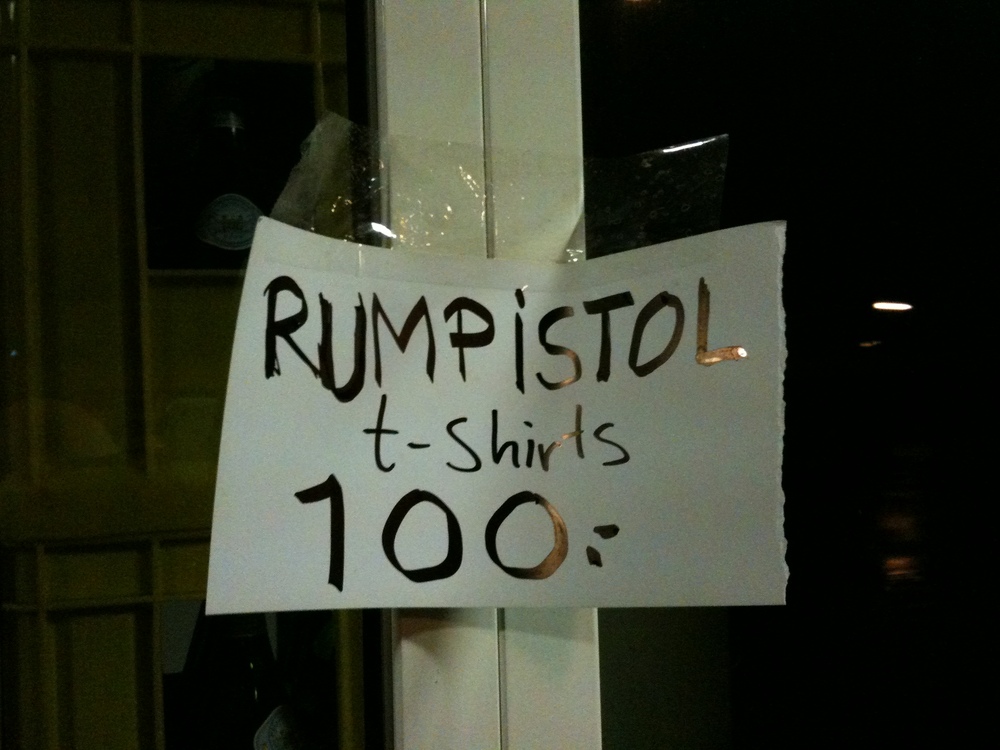 RUMPiSTOL
t-shirts
100:-